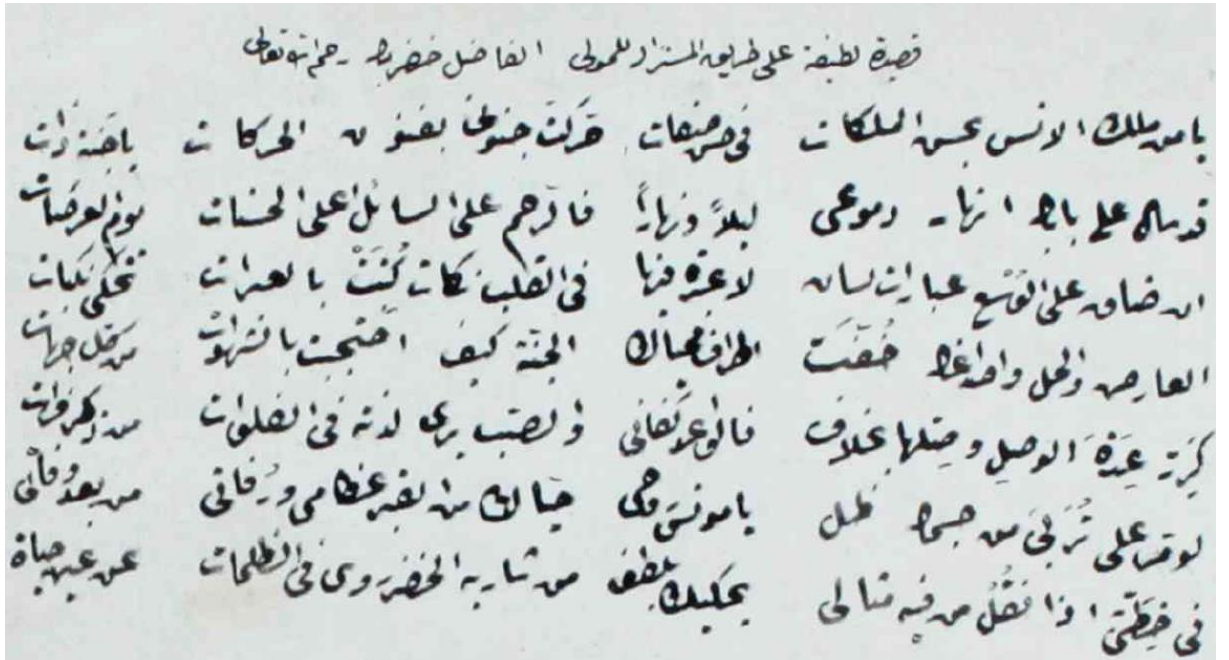 قصيدة لطيفة على طريق المستزاد للمولى الفاضل خضربك رحمه الله تعالى
يا من ملك الانس بحسن الملكات في حسن صفات حركت جنوني بفنون الحركات يا جنة ذات
قد سال على بابك انهار دموعي ليلاً ونهاراً فارحم على السائل اعلى الحسنات يوم العرصات
ان ضاق على الوسع عبارات لسان لا عبرة فيها في القلب نكات كُتِبَتْ بالعبرات تحكي نكبات
العارض والخل واصداغك حُفّت اطراف جمالك الجنة كيف احتجبت بالشهوات من كل جهات
كرر عِدَةَ الوصل وصِلها بخلاف فالوعد كفاني والصب يرى لذته في الفلوات من ذكر فرات
لو مرّ على تُربتي من جسمك ظل يا مونس روحي حياك من القبر عظامي ورُفاتي من بعد وفاتي
في خيطتي اذا نقل من فيه مثالى يحكيك بلطف من شاربه الخضر روى في الظلمات عن عين حياة